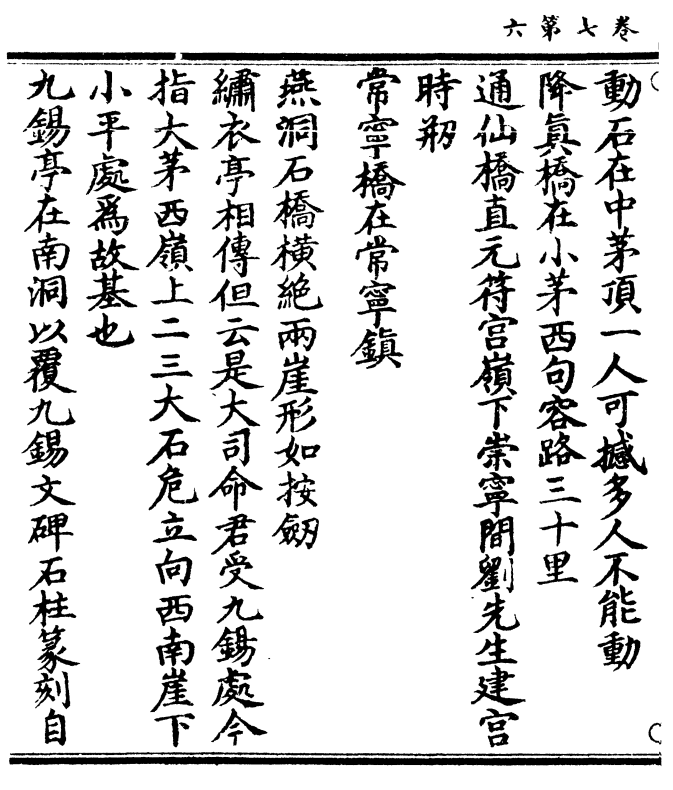 卷七第六
動石在中茅頂一人可撼多人不能動
降眞橋在小茅西句容路三十里
通仙橋直元符宫嶺下崇寧間劉先生建宫
時剏
常寧橋在常寧鎮
燕洞石橋橫絶兩崖形如按劒
繡衣亭相傳但云是大司命君受九錫處今
指大茅西嶺上二三大石危立向西南崖下
小平處爲故基也
九錫亭在南洞以覆九錫文碑石柱篆刻自